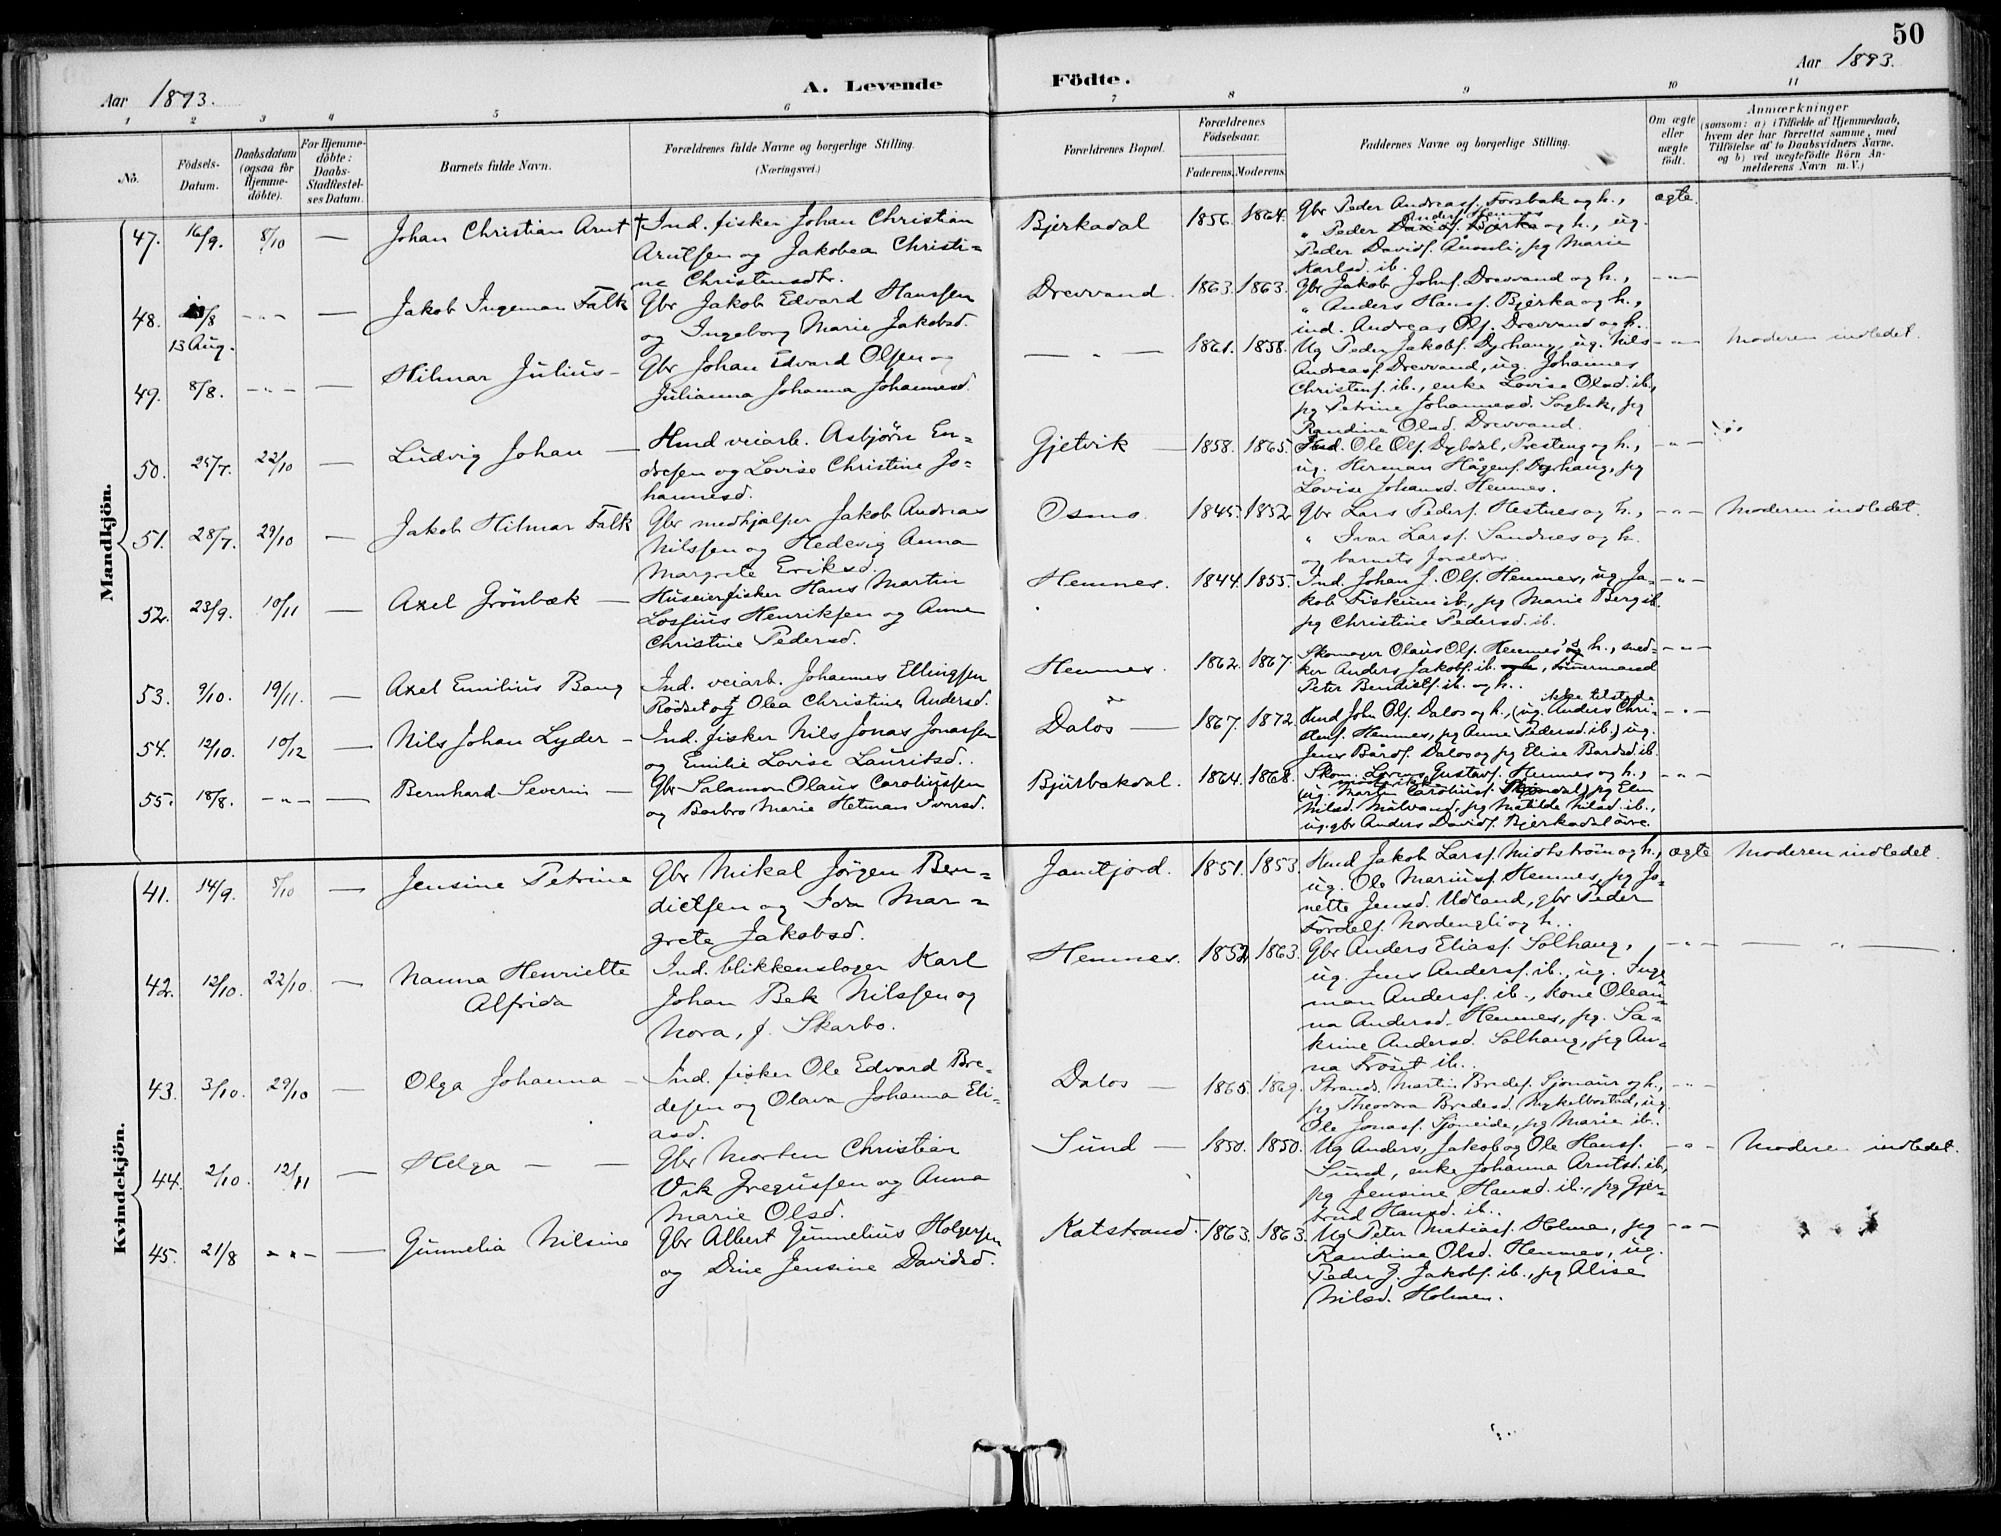 50
Aar 1893.
A. Levende Födte.
Aar 1893.
1 2 3 4 5 6 7 8 9 10 11
No.
Födsels-Datum.
Daabsdatum (ogsaa for Hjemme-döbte).
For Hjemme-döbte: Daabs-Stadfæstel-ses Datum.
Barnets fulde Navn.
Forældrenes fulde Navne og borgerlige Stilling.
(Næringsvei.)
Forældrenes Bopæl.
Forældrenes Födselsaar.
Faderens. Moderens.
Faddernes Navne og borgerlige Stilling.
Om ægte eller uægte födt.
Anmærkninger
(saasom: a) i Tilfælde af Hjemmedaab, hvem der har forrettet samme, med Tilföielse af to Daabsvidners Navne. og b) ved uægtefödte Börn An-melderens Navn m.V.)
Mandkjön.
47. 16/9. 8/10 — Johan Christian Arnt † Ind. fisker Johan Christian
Arntsen og Jakobea Christi-
ne Christensdtr.
Bjerkadal 1856. 1864.
Gbr Peder Andreasf. Forsbak og h.,
" Peder og h., ug.
Peder Davidf. , pg Marie
Karlsd. ib.
ægte
48. /8 13 Aug. - " - — Jakob Ingeman Falk Gbr Jakob Edvard Hanssen
og Ingeborg Marie Jakobsd.
Drevvand. 1863. 1863.
Gbr Jakob Johnf. Drevvand og h.,
" Anders Hansf. Bjerka og h.,
ind. Andreas Olf. Drevvand og h.
- " -
49. 8/8. - " - — Hilmar Julius - Gbr Johan Edvard Olsen og
Julianna Johanna Johannesd.
— " — 1861. 1858.
Ug Peder Jakobf. Dyrhaug, ug. Nils
Andreasf Drevvand, ug. Johannes
Christenf. ib., enke Lovise Olsd. ib.,
pg Petrine Johannesd. Sagbak, pg
Randine Olsd. Drevvand.
- " - Moderen indledet.
50. 25/7. 22/10 — Ludvig Johan — Hmd veiarb. Asbjörn En-
dresen og Lovise Christine Jo-
hannesd.
Gjetvik — 1858. 1865.
Ind. Ole Olf. Dybdal, Presteng og h.,
ug. Herman Hågenf. Dyrhaug, pg
Lovise Johansd. Hemnes.
- " -
51. 28/7. 29/10 — Jakob Hilmar Falk Gbr medhjælper Jakob Andreas
Nilssen og Hedevig Anna
Margrete Eriksd.
Osmo 1845. 1852
Gbr Lars Pederf. Hestnes og h.,
" Ivar Larsf. Sandnes og h.
og barnets forældre
- " - Moderen indledet.
52. 23/9. 10/11 — Axel Grönbæk — Huseier fisker Hans Martin
Lossius Henriksen og Anne
Christine Pedersd.
Hemnes. 1844. 1855.
Ind. Johan J. Olf. Hemnes, ug Ja-
kob Fiskum ib., pg Marie Berg ib.
pg Christine Pedersd. ib.
- " -
53. 9/10. 19/11. — Axel Emilius Bang Ind. veiarb. Johannes Ellingsen
Rödset og Olea Christine Andersd.
Hemnes. 1862. 1867.
Skomager Olaus Olf. Hemnes og h., sned-
ker Anders Jakobf. ib. , tömermand
Peter Bendikf. ib. og h..
- " -
54. 12/10. 10/12 — Nils Johan Lyder - Ind. fisker Nils Jonas Jonassen
og Emilie Lovise Lauritsd..
Dalos — 1867. 1872.
ikke tilstede
Hmd John Olf. Dalos og h., (ug. Anders Chri-
stenf. Hemnes, pg Anne Pedersd. ib.) ug.
Jens Bårdf. Dalos og pg Elise Bardsd. ib.
- " -
55. 18/8. - " - — Bernhard Severin — Gbr Salamon Olaus Caroliussen
og Barbro Marie Hetman Ivarsd.
Bjurbekdal. 1864. 1868.
Skom. Gustavf. Hemnes og h.,
ug. Martin Caroliusf. , pg Elen
Nilsd. Målvand, pg Matilde Nilsd. ib.,
ug. gbr Anders Davidf. Bjerkadal övre.
- " -
Kvindekjön.
41. 14/9. 8/10 — Jensine Petrine Gbr Mikal Jörgen Ben-
dictsen og Ida Mar-
grete Jakobsd.
Jamtjord. 1851. 1853.
Hmd Jakob Larsf. Midtström og h.,
ug. Ole Mariusf. Hemnes, pg Jo-
nette Jensd. Utland, gbr Peder
Tordelf. Nordengli og h..
ægte Moderen indledet.
42. 12/10. 22/10. — Nanna Henriette
Alfrida
Ind. blikkenslager Karl
Johan Bek Nilssen og
Nora, f. Skarbo.
Hemnes. 1852. 1863.
Gbr Anders Eliasf. Solhaug,
ug. Jens Andersf. ib., ug. Inge-
man Andersf. ib., kone Olean-
na Andersd. Hemnes, pg. Sa-
krine Andersd. Solhaug, pg An-
na Fröset ib..
- " - — " —
43. 3/10. 29/10 — Olga Johanna - Ind. fisker Ole Edvard Bre-
desen og Olava Johanna Eli-
asd.
Dalos — 1865. 1869.
Strands. Martin Bredef. Sjonaur og h.,
pg Theodora Bredesd. Mykelbostad, ug.
Ole Jonasf. Sjoneide, pg Marie ib..
- " -
44. 2/10. 12/11 — Helga — — Gbr Morten Christian
Vik Gregussen og Anna
Marie Olsd.
Sund — 1850. 1850.
Ug Anders, Jakob og Ole Hansf.
Sund, enke Johanna Arntsd. ib,
pg Jensine Hansd. ib., pg Gjer-
trud Hansd. ib..
- " - Moderen indledet.
45. 21/8 - " - — Gunnelia Nilsine Gbr Albert Gunnelius Holgersen
og Dine Jensine Davidsd.
Katstrand. 1863. 1863.
Ug Peter Matiasf. Holmen, pg
Randine Olsd. Hemnes, ug.
Peder J. Jakobf. ib., pg Alise
Nilsd. Holmen.
- " -